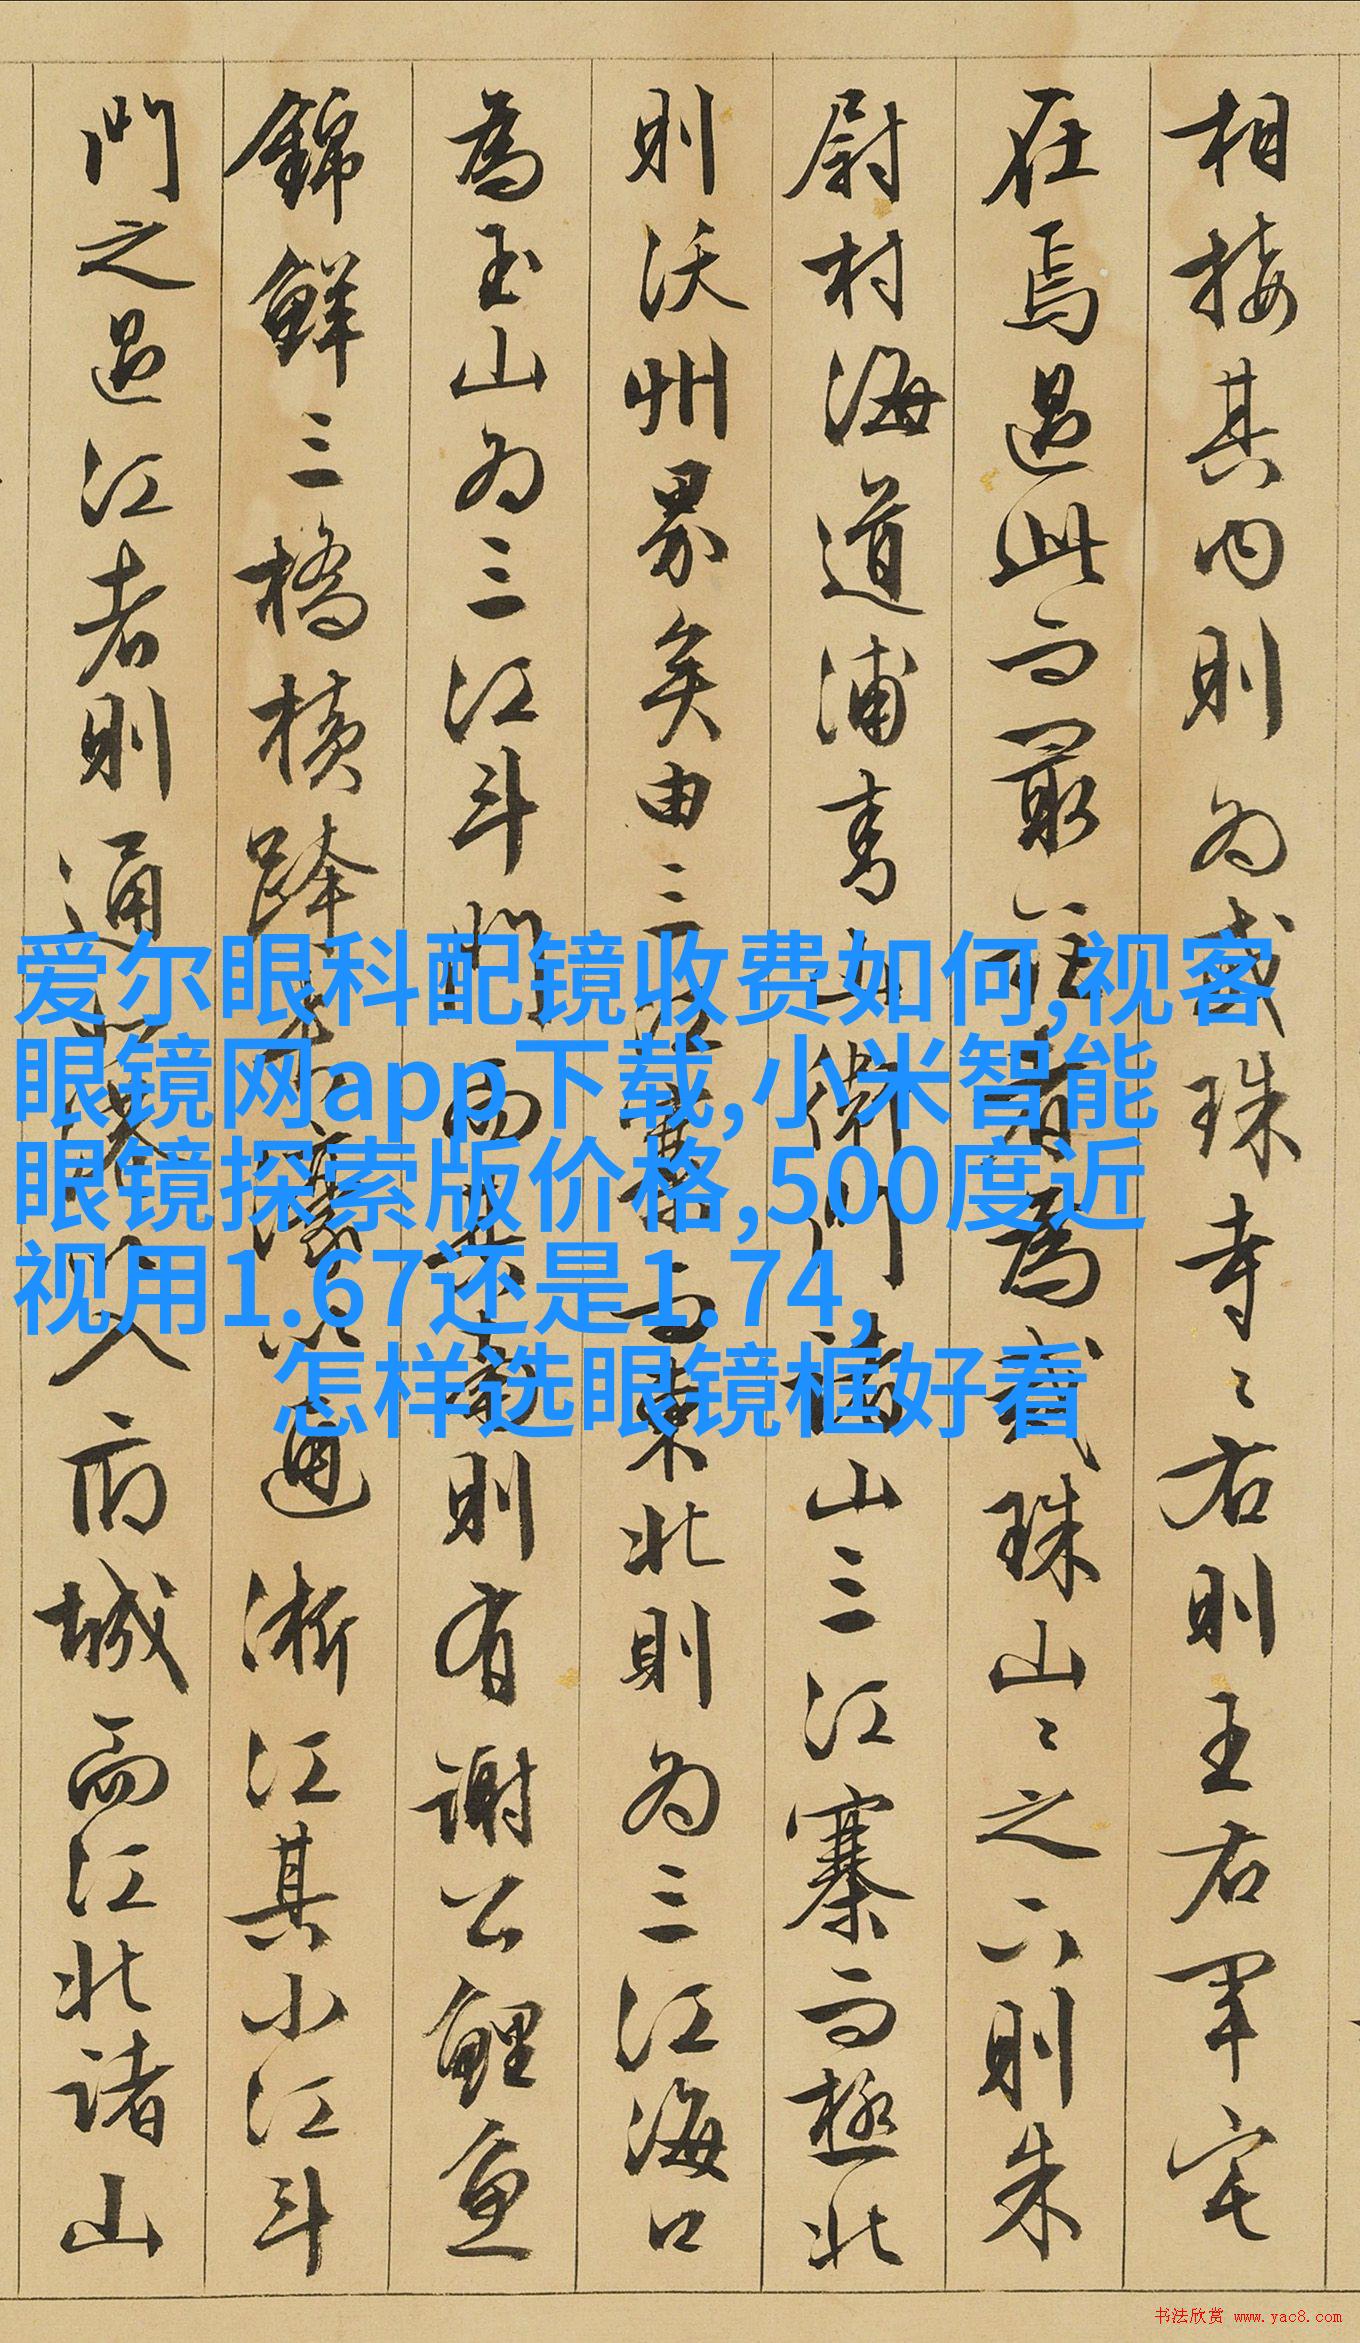 相接其内則为戒珠寺〻右則王右軍宅
在焉過此而最 者為戒珠山〻之 則朱
尉村海道浦 山三江寨而極北
則沃州界矣由三 而東北則为三江海口
為玉山为三江斗門 則有謝公鯉魚
錦鱗三橋横跨 通浙江其小江斗
門之過江者則通 入府城而江北諸山
爱尔眼科配镜收费如何,视客
眼镜网app下载,小米智能
眼镜探索版价格,500度近
视用1.67还是1.74,
怎样选眼镜框好看
书法欣赏 www.yac8.com